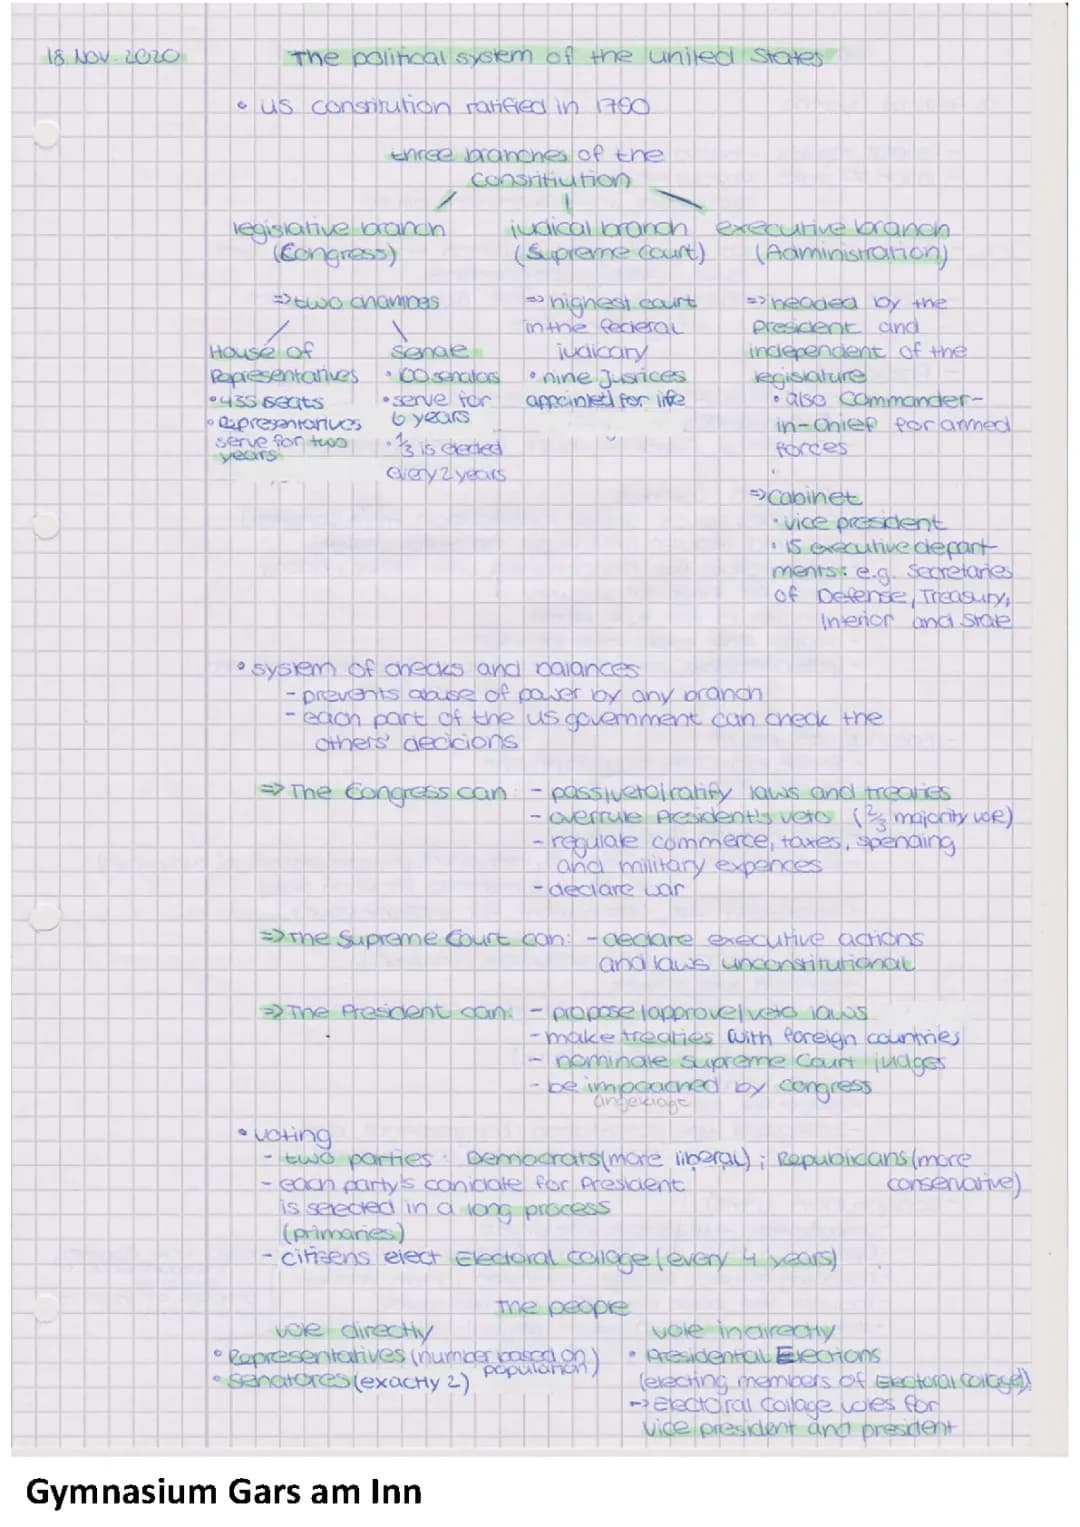 18 Nov. 2020
The political system of the United States
• US constitution ratified in 1790
three branches of the
Consritiution
legislative branch
(Congress)
judical branch
(Supreme Court)
executive branch
(Administration)
⇒ two chambes
House of
Representatives
• 435 seats
• Representatives
serve for two
years
Senate
• 100 senatos
• serve for
6 years
• 1/3 is elected
every 2 years
⇒ highest court
in the federal
judicary
• nine Justices
appointed for life
⇒ headed by the
President and
independent of the
legislature
• also Commander-
in-Chief for armed
forces
⇒ Cabinet
• vice president
• 15 executive depart-
ments: e.g. Secretaries
of Defense, Treasury,
Interior and State
• system of checks and balances
- prevents abuse of power by any branch
- each part of the US government can check the
others' decicions
⇒ The Congress can - pass/veto/ratify laws and treaties
- overrule President's veto (2/3 majority vote)
- regulate commerce, taxes, spending
and military expences
- declare war
⇒ The Supreme Court can: - declare executive actions
and laws unconstitutional
⇒ The President can: - propose/approve/veto laws
- make treaties with foreign countries
- nominate Supreme Court judges
- be impeached by Congress
angeklagt
• voting
- two parties: Democrats (more liberal); Republicans (more
conservative)
- each party's canidate for President
is selected in a long process
(primaries)
- citizens elect Electoral Collage (every 4 years)
The people
vote directly
• Representatives (number based on
population)
• Senatores (exactly 2)
vote indirectly
• Presidential Elections
(electing members of Electoral Collage)
→ Electoral Collage votes for
vice president and president
Gymnasium Gars am Inn